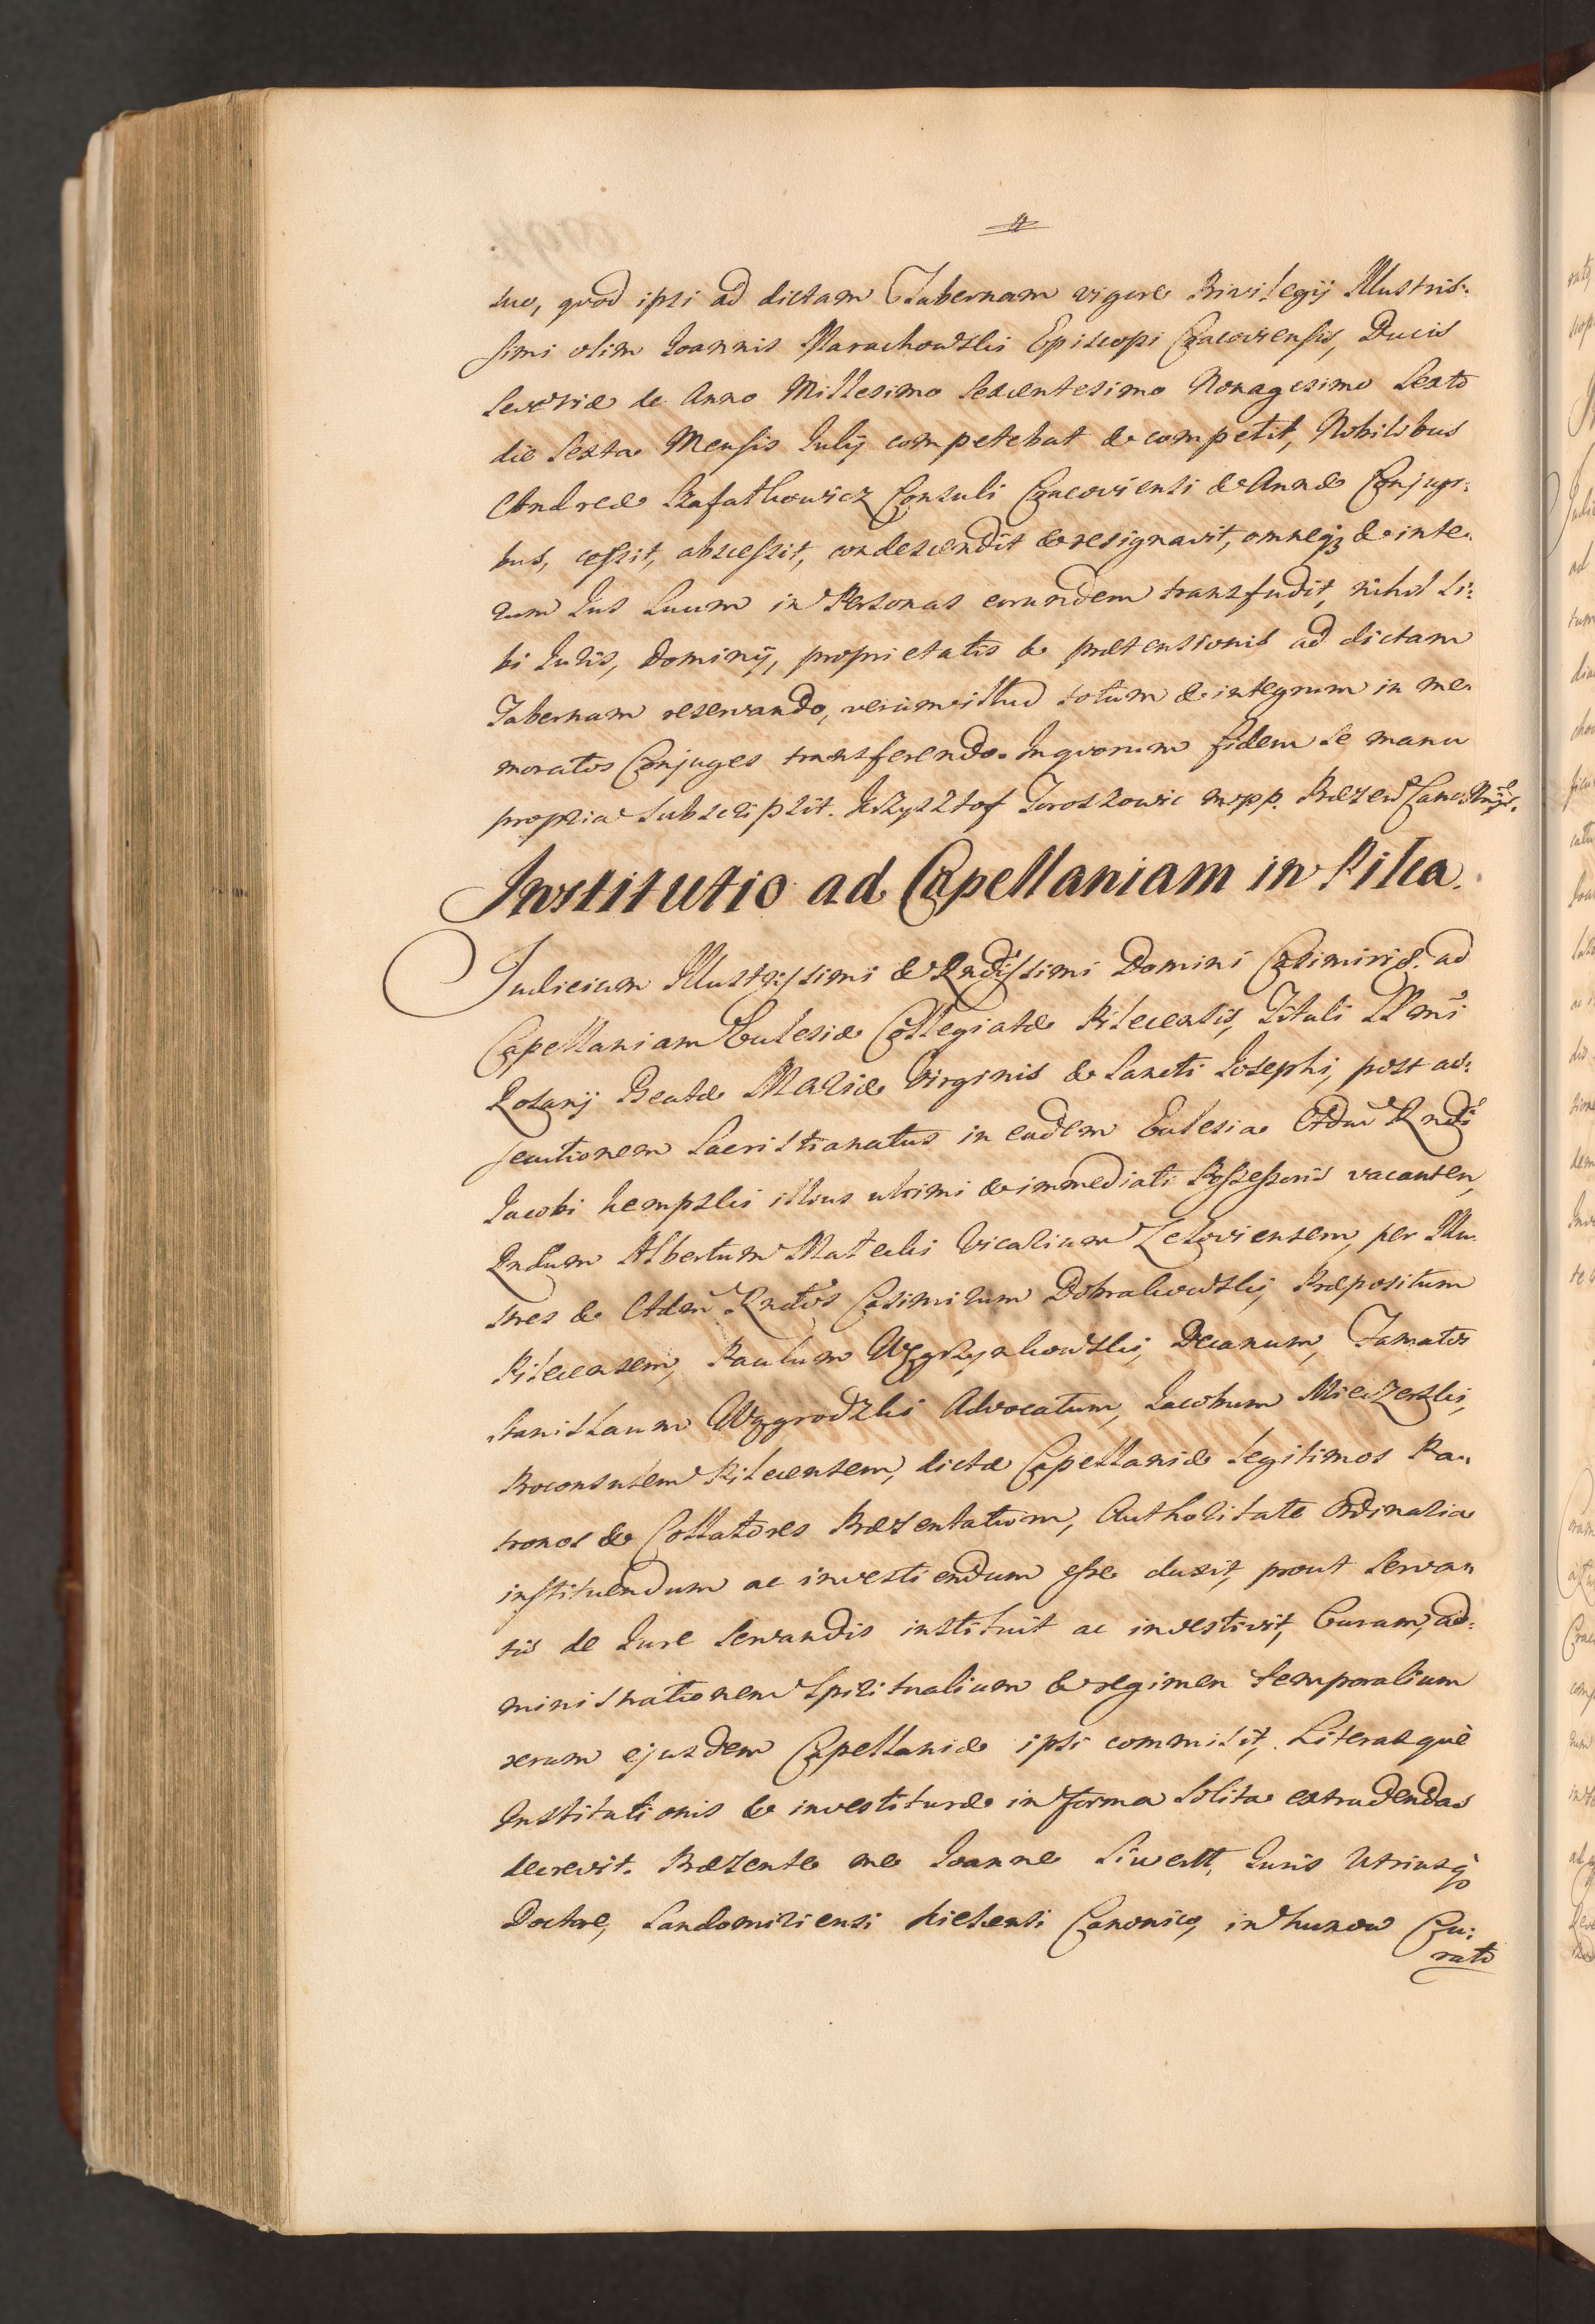 suo, quod ipsi ad dictam Tabernam vigore Privilegij Illustris:
simi olim Joannis Marachowski Episcopi Cracoviensis, Ducis
Severiæ de Anno Millesimo Sexcentesimo Nonagesimo Sexto
die Sexta Mensis Julij competebat & competit, Nobilibus
Andreæ Szafatkowicz Consuli Cracoviensi & Annæ Conjugi:
bus, cessit, abscessit, condescendit & resignavit, omneq3 & inte:
rum Jus Suum in Personas eorundem transfudit, nihil Si:
bi Juris, Dominij, proprietatis & prætensionis ad dictam
Tabernam reservando, verùm illud totum & integrum in me:
moratos Conjuges transferendo. In quorum fidem Se manu
propria subscripsit. Krzysztof Toroszowic mpp.
Institutio ad Capellaniam in Pilca.
Judicium Illustrissimi & Rndissimi Domini Casimiri &. ad
Capellaniam Ecclesiæ Collegiatæ Pilecensis, Tituli SSmi
Rosarij Beatæ Mariæ Virginis & Sancti Josephi, post as:
secutionem Sacristianatus in eadem Ecclesia Adm Rndi
Jacobi Kempski illius ultimi & immediati Possessoris vacanten,
Rndum Albertum Matecki Vicarium Zeloviensem, per Illu:
stres & Adm Rndos Casimirum Dobrakowski, Præpositum
Pilecensem, Paulum Węgrzynkowski, Decanum, Famatos
Stanislaum Węgrodzki Advocatum, Jacobum Mieczerski,
Proconsulem Pilecensem, dictæ Capellaniæ legitimos Pa:
tronos & Collatores Præsentatum, Authoritate Ordinaria
instituendum ac investiendum esse duxit, prout Serva:
tis de Jure Servandis instituit ac investivit, Curam, ad:
ministrationem Spiritualium & regimen temporalium
rerum ejusdem Capellaniæ ipsi commisit, Literasquè
Institutionis & investituræ in forma Solita extradendas
decrevit. Præsente me Joanne Siwertt, Juris Utriusq
Doctore, Sandomiriensi Kielcensi Canonico, in Cu:
rato